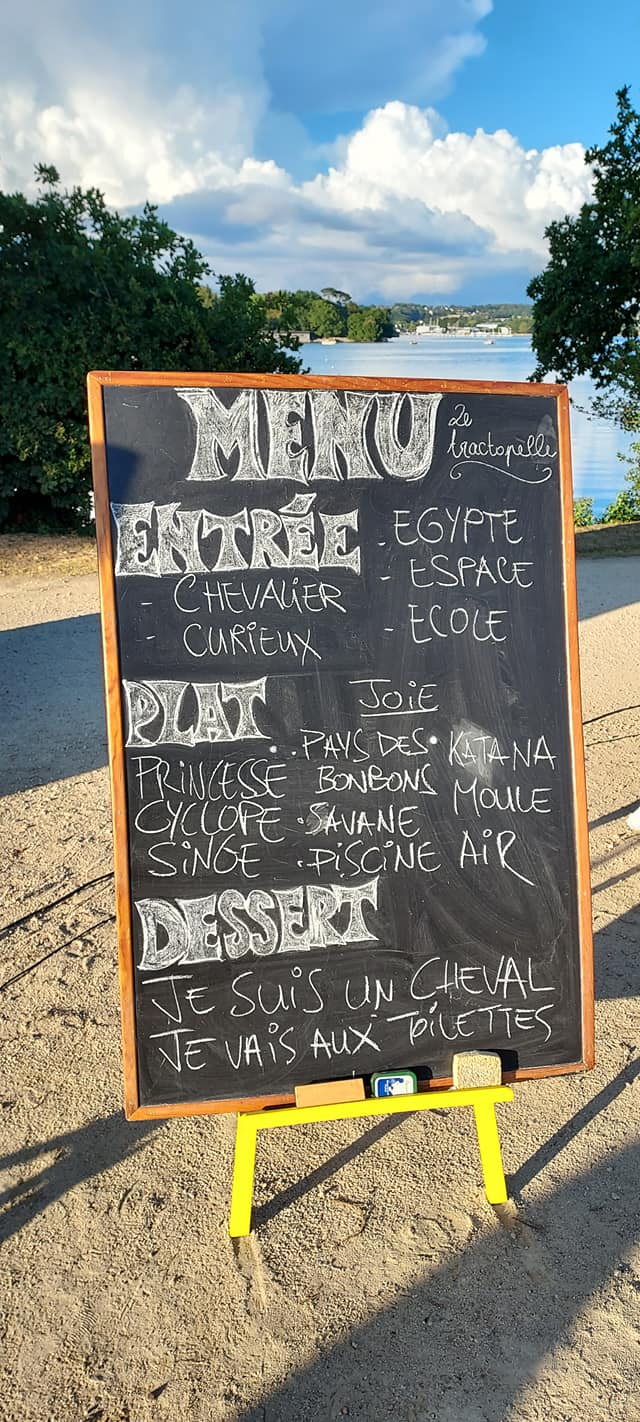 MENU
Le
tractopèlle
ENTRÉE
- CHEVALIER
- CURIEUX
- EGYPTE
- ESPACE
- ECOLE
PLAT
PRINCESSE
CYCLOPE
SINGE
JOIE
• PAYS DES
BONBONS
• SAVANE
• PISCINE
• KATANA
MOULE
AIR
DESSERT
JE SUIS UN CHEVAL
JE VAIS AUX TOILETTES